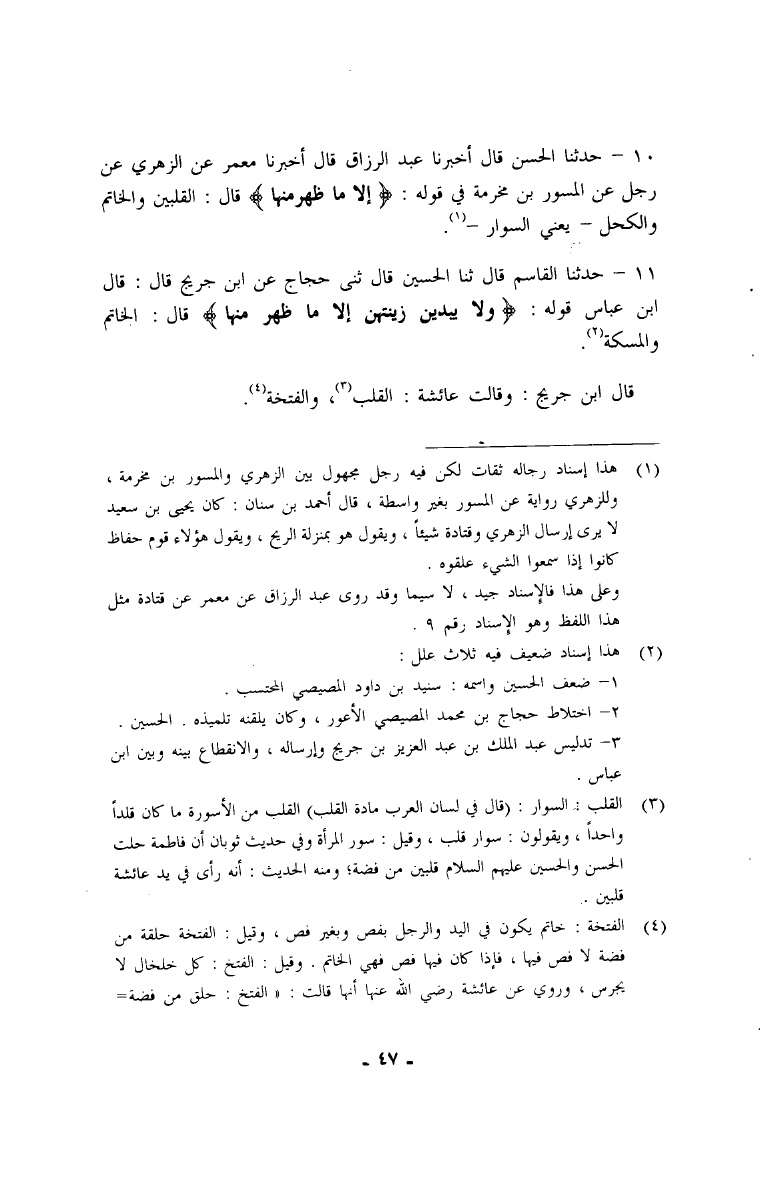 ١٠ - حدثنا الحسن قال أخبرنا عبد الرزاق قال أخبرنا معمر عن الزهري عن
رجل عن المسور بن مخرمة في قوله : ﴿ إلا ما ظهرمنها ﴾ قال : القلبين والخاتم
والكحل - يعني السوار -(١).
١١ - حدثنا القاسم قال ثنا الحسين قال ثنى حجاج عن ابن جريج قال : قال
ابن عباس قوله : ﴿ ولا يبدين زينتهن إلا ما ظهر منها ﴾ قال : الخاتم
والمسكة(٢).
قال ابن جريج : وقالت عائشة : القلب(٣)، والفتخة(٤).
(١) هذا إسناد رجاله ثقات لكن فيه رجل مجهول بين الزهري والمسور بن مخرمة ،
وللزهري رواية عن المسور بغير واسطة ، قال أحمد بن سنان : كان يحيى بن سعيد
لا يرى إرسال الزهري وقتادة شيئاً ، ويقول هو بمنزلة الريح ، ويقول هؤلاء قوم حفاظ
كانوا إذا سمعوا الشيء علقوه .
وعلى هذا فالإسناد جيد ، لا سيما وقد روى عبد الرزاق عن معمر عن قتادة مثل
هذا اللفظ وهو الإسناد رقم ٩ .
(٢) هذا إسناد ضعيف فيه ثلاث علل :
١- ضعف الحسين واسمه : سنيد بن داود المصيصي المحتسب .
٢- اختلاط حجاج بن محمد المصيصي الأعور ، وكان يلقنه تلميذه . الحسين .
٣- تدليس عبد الملك بن عبد العزيز بن جريج وإرساله ، والانقطاع بينه وبين ابن
عباس .
(٣) القلب : السوار : (قال في لسان العرب مادة القلب) القلب من الأسورة ما كان قلداً
واحداً ، ويقولون : سوار قلب ، وقيل : سور المرأة وفي حديث ثوبان أن فاطمة حلت
الحسن والحسين عليهم السلام قلبين من فضة؛ ومنه الحديث : أنه رأى في يد عائشة
قلبين .
(٤) الفتخة : خاتم يكون في اليد والرجل بفص وبغير فص ، وقيل : الفتخة حلقة من
فضة لا فص فيها ، فإذا كان فيها فص فهي الخاتم . وقيل : الفتخ : كل خلخال لا
يجرس ، وروي عن عائشة رضي الله عنها أنها قالت : « الفتخ : حلق من فضة=
- ٤٧ -